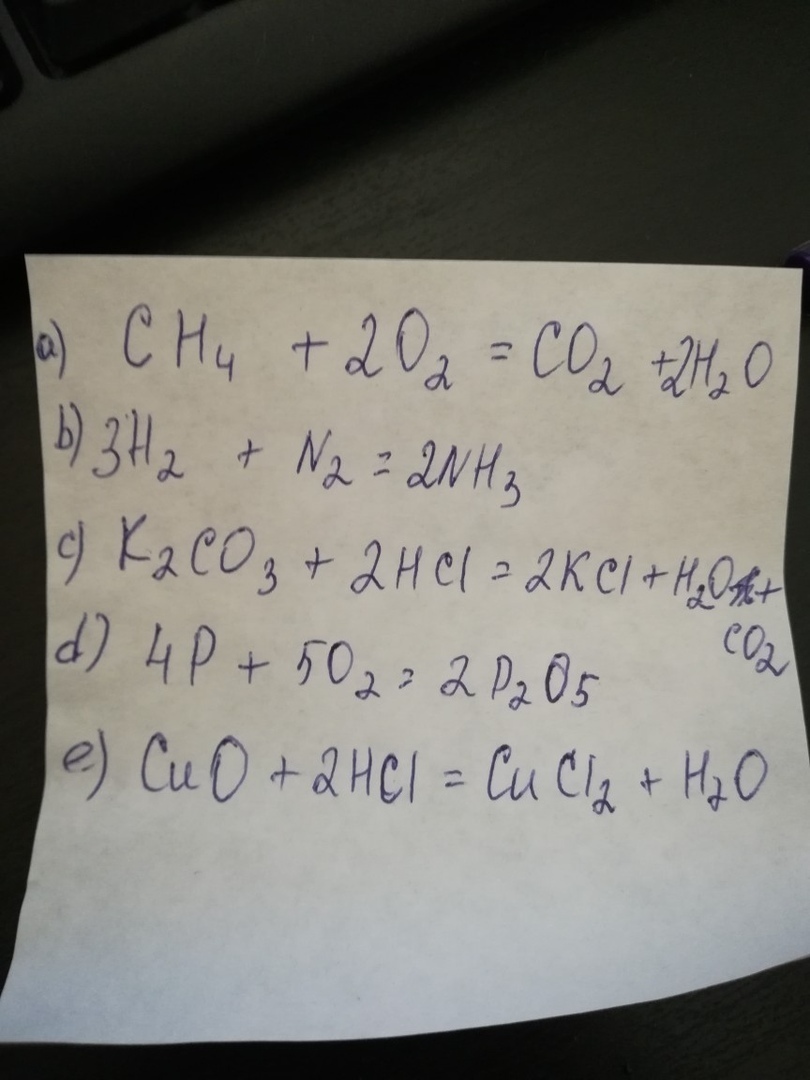 a) CH₄ + 2O₂ = CO₂ + 2H₂O
b) 3H₂ + N₂ = 2NH₃
c) K₂CO₃ + 2HCl = 2KCl + H₂O +
CO₂
d) 4P + 5O₂ = 2P₂O₅
e) CuO + 2HCl = CuCl₂ + H₂O